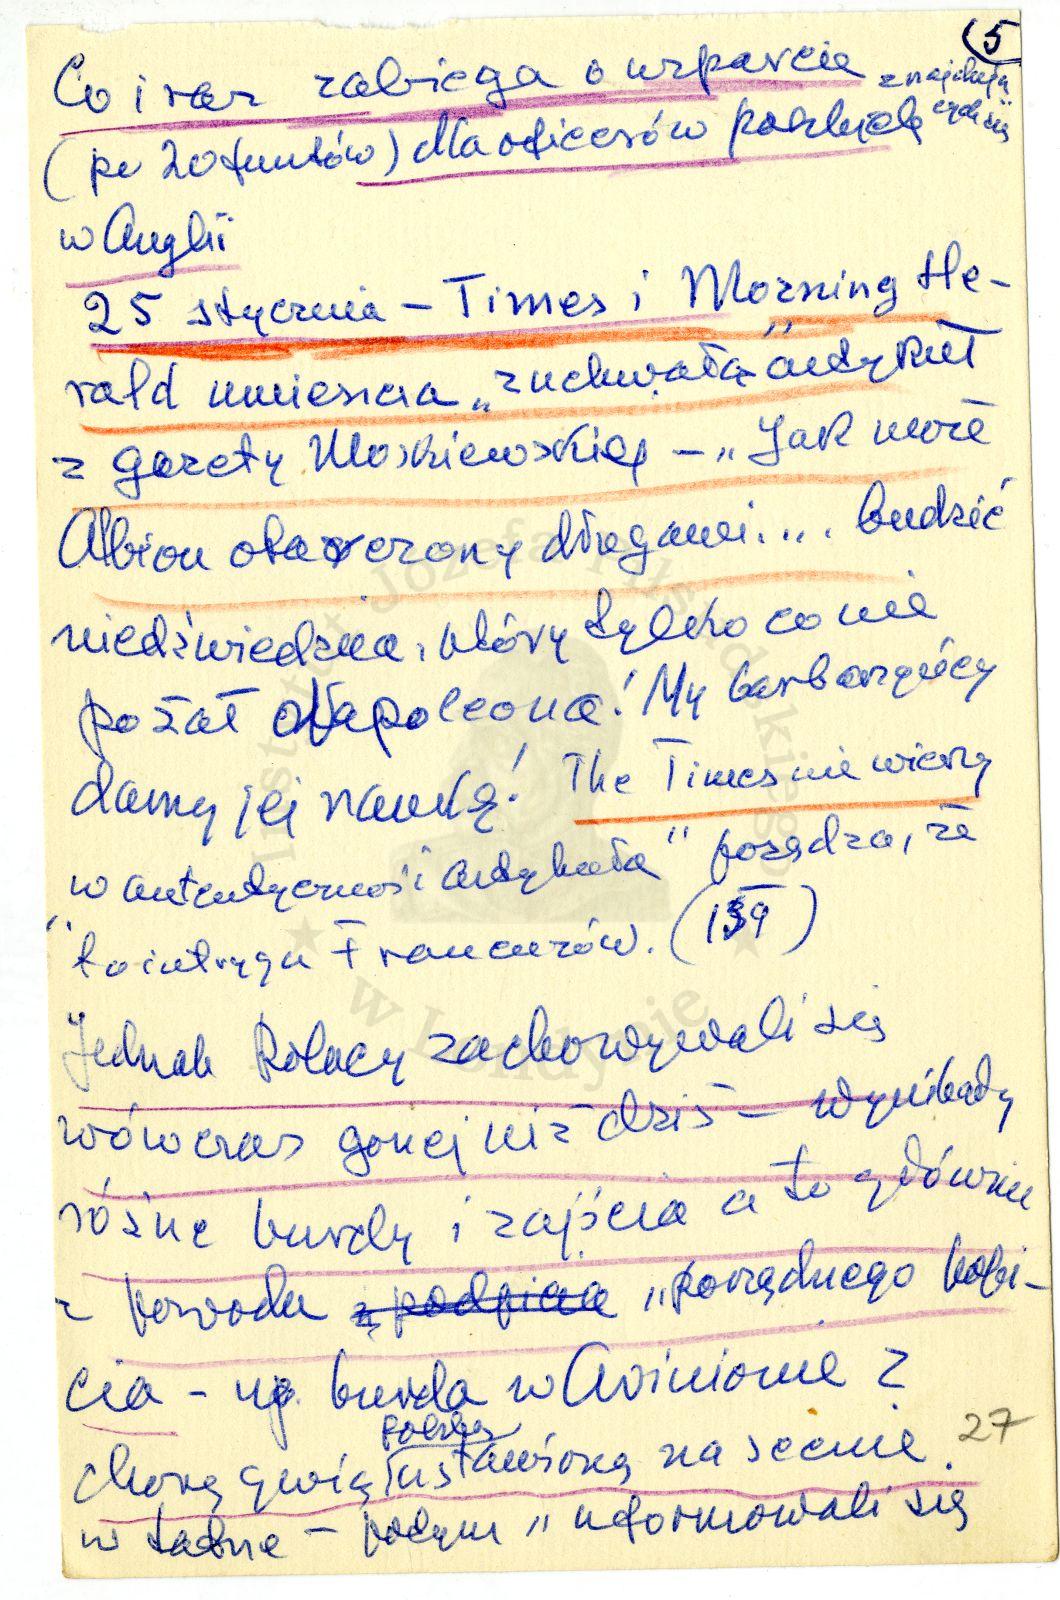 (5
Co i raz zabiega o wsparcie znajdują
(po 20 funtów) dla oficerów polskich cych się
w Anglii
25 stycznia – Times i Morning He-
rald umieszcza „zuchwałą" artykuł
z gazety Moskiewskiej – „Jak może
Albion otoczony długami.... budzić
niedźwiedzia, który tylko co nie
pożał Napoleona! My barbarzyńcy
damy jej naukę! The Times nie wierzy
w autentyczność artykułu" posądza, że
"to intryga Francuzów. (159)
Jednak Polacy zachowywali się
wówczas gorzej niż dziś – wynikały
różne burdy i zajścia a to głównie
z powodu z podpicia „porządnego
cia – np. burda w Avinionie z
polską
chorągwią ustawioną na scenie. 27
w – potym „uformowali się
Instytut Józefa Piłsudskiego
w Londynie